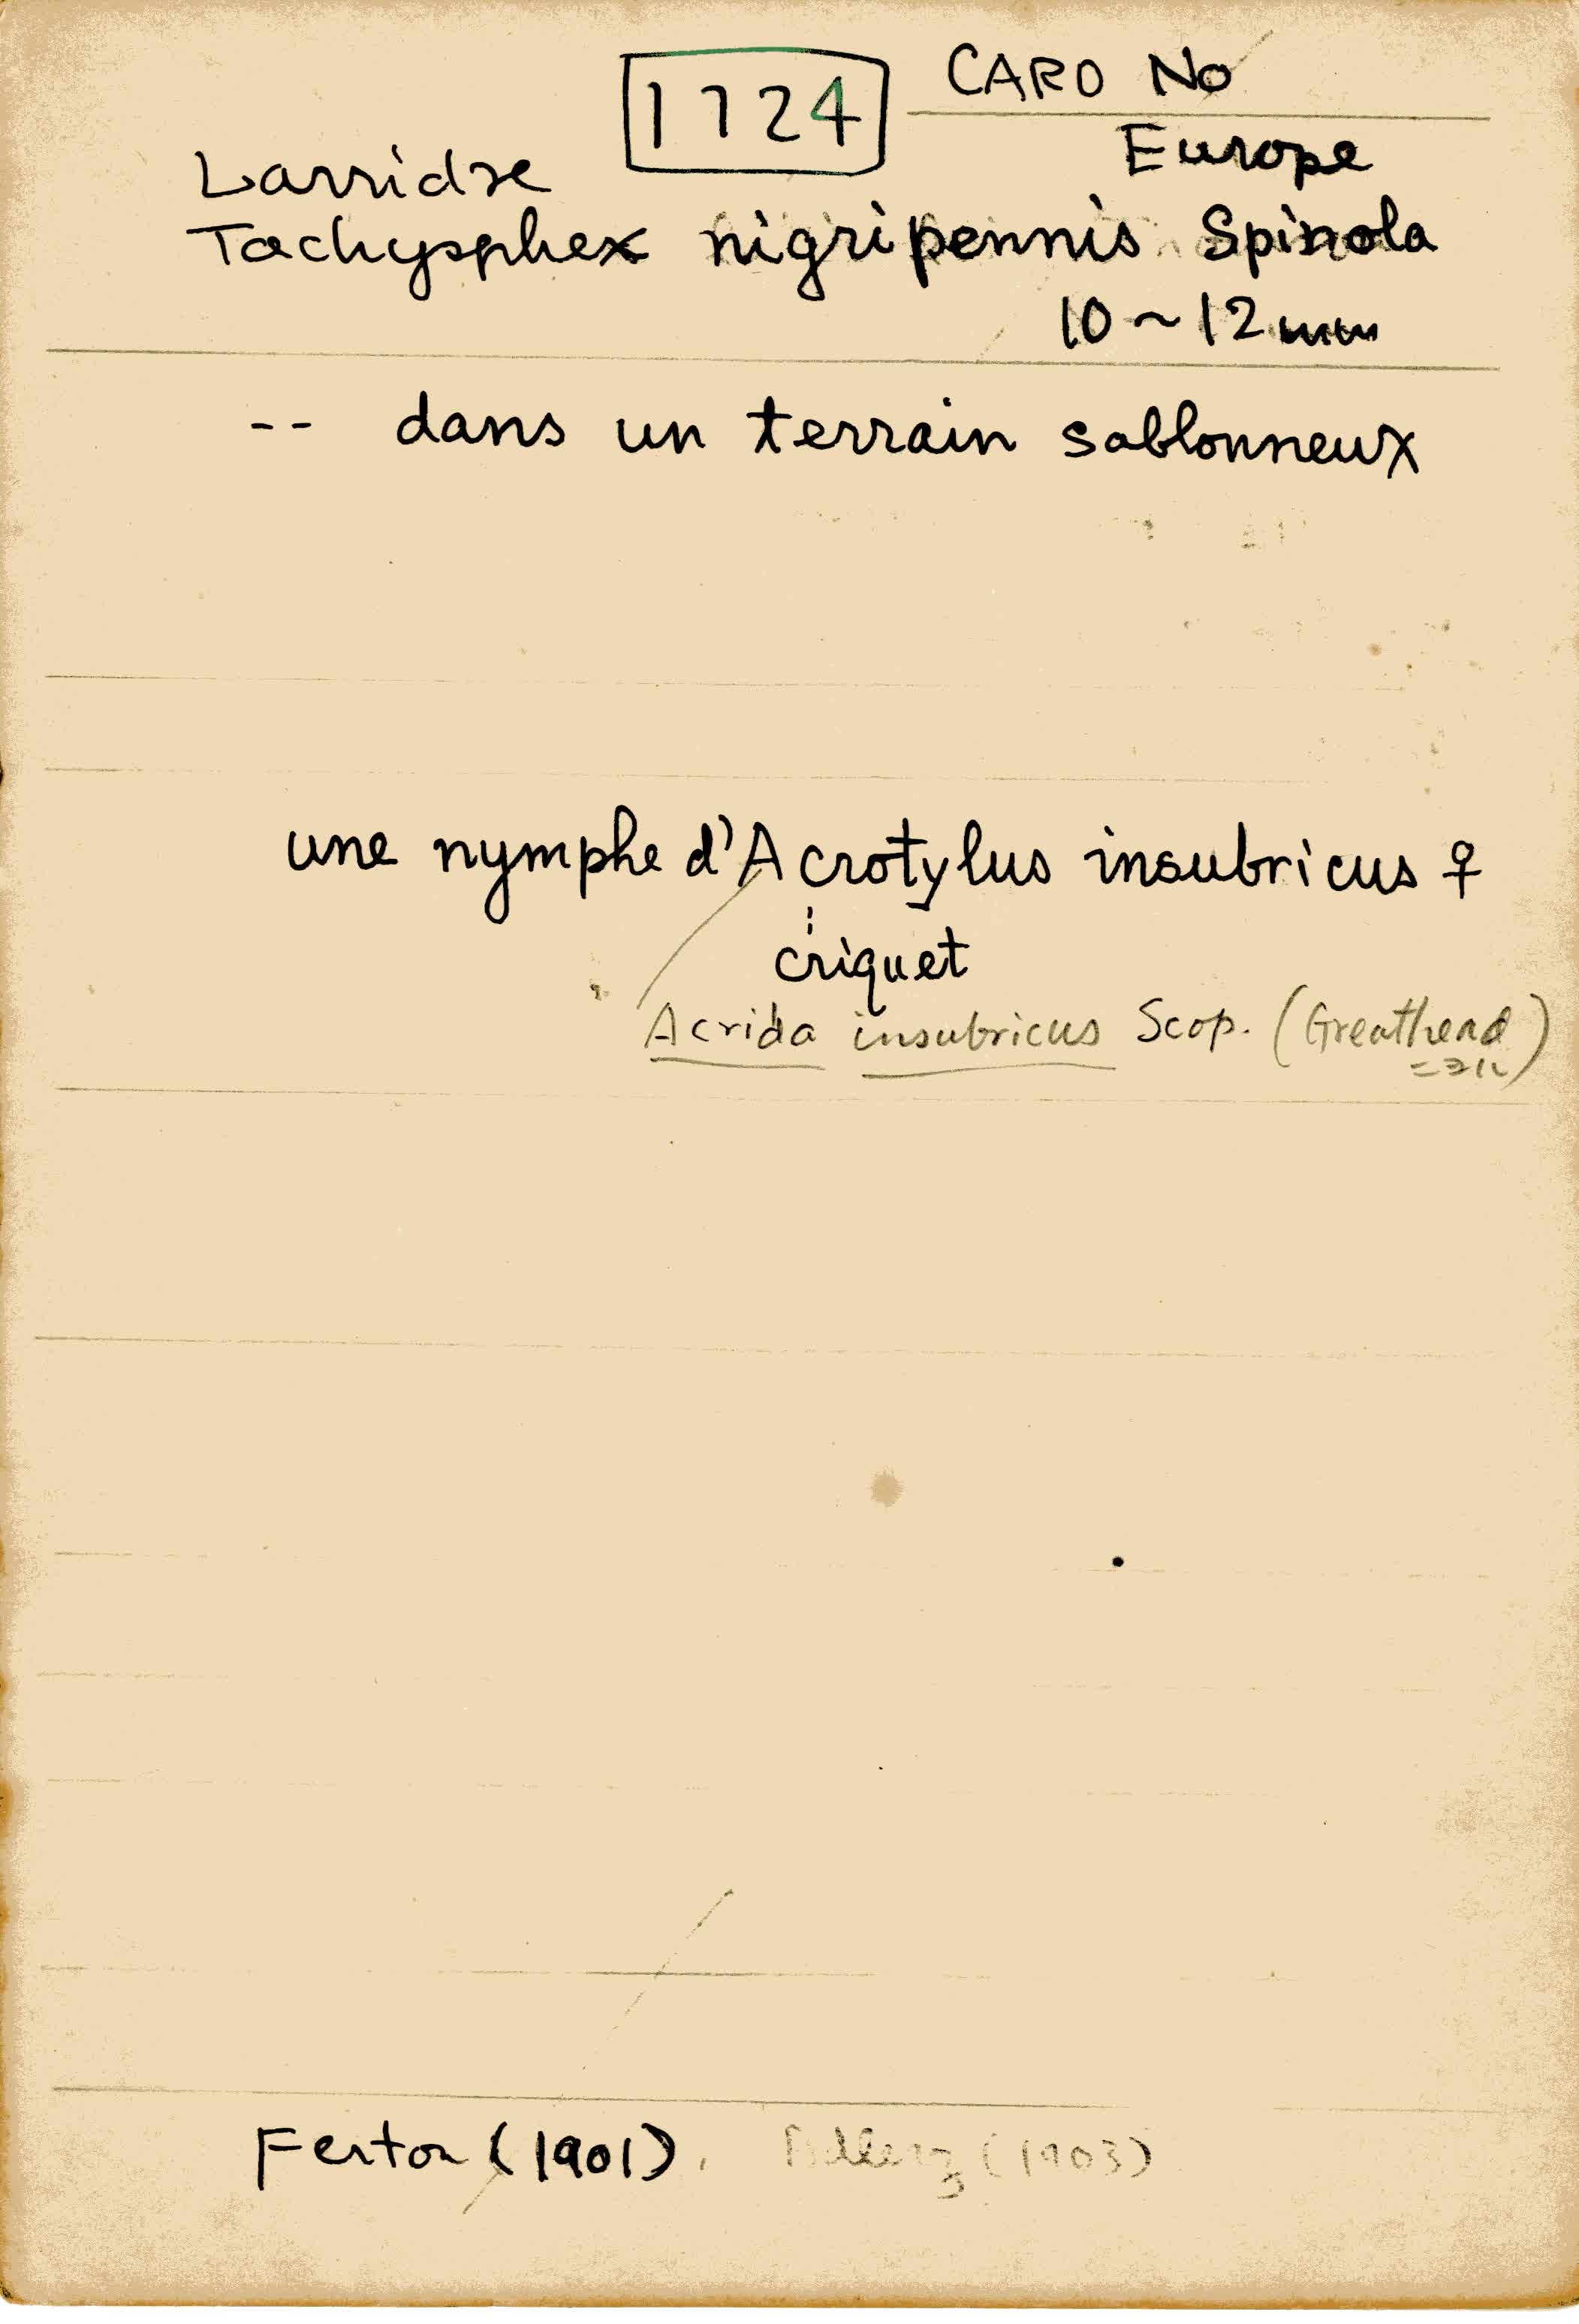 1724 CARD No
Europe
Larridae
Tachysphex nigripennis Spinola
10~12mm
-- dans un terrain sablonneux
une nymphe d'Acrotylus insubricus ♀
criquet
Acrida insubricus Scop. (Greathead
ニヨル)
Ferton (1901). Adlerz (1903)